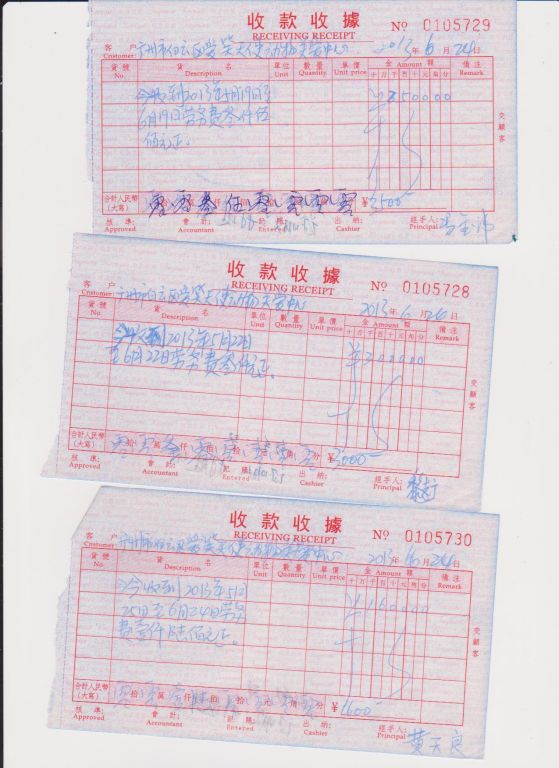 收款收據
RECEIVING RECEIPT
Nº 0105729
客 户
Cnstomer
2013年6月24日
貨號 No. 貨 名 Description 單位 Unit 數量 Quantity 單價 Unit price 金 Amount 額 備注 Remark
十万千百十元角分
今收到2013年5月19日至
¥350000
6月19日劳务费叁仟伍
佰元正。
交顧客
合計人民幣(大寫)
¥3500-
核準: Approved 會計: Accountant 記賬: Entered 出納: Cashier 經手人: Principal
收款收據
RECEIVING RECEIPT
Nº 0105728
客 户
Cnstomer
2013年6月24日
貨號 No. 貨 名 Description 單位 Unit 數量 Quantity 單價 Unit price 金 Amount 額 備注 Remark
十万千百十元角分
今收到2013年5月22日
¥300000
至6月22日劳务费叁仟元正。
交顧客
合計人民幣(大寫)
¥3000-
核準: Approved 會計: Accountant 記賬: Entered 出納: Cashier 經手人: Principal
收款收據
RECEIVING RECEIPT
Nº 0105730
客 户
Cnstomer
2013年6月24日
貨號 No. 貨 名 Description 單位 Unit 數量 Quantity 單價 Unit price 金 Amount 額 備注 Remark
十万千百十元角分
今收到2013年5月
¥160000
25日至6月24日劳务
费壹仟陆佰元正。
交顧客
合計人民幣(大寫)
¥1600-
核準: Approved 會計: Accountant 記賬: Entered 出納: Cashier 經手人: Principal 黄天良